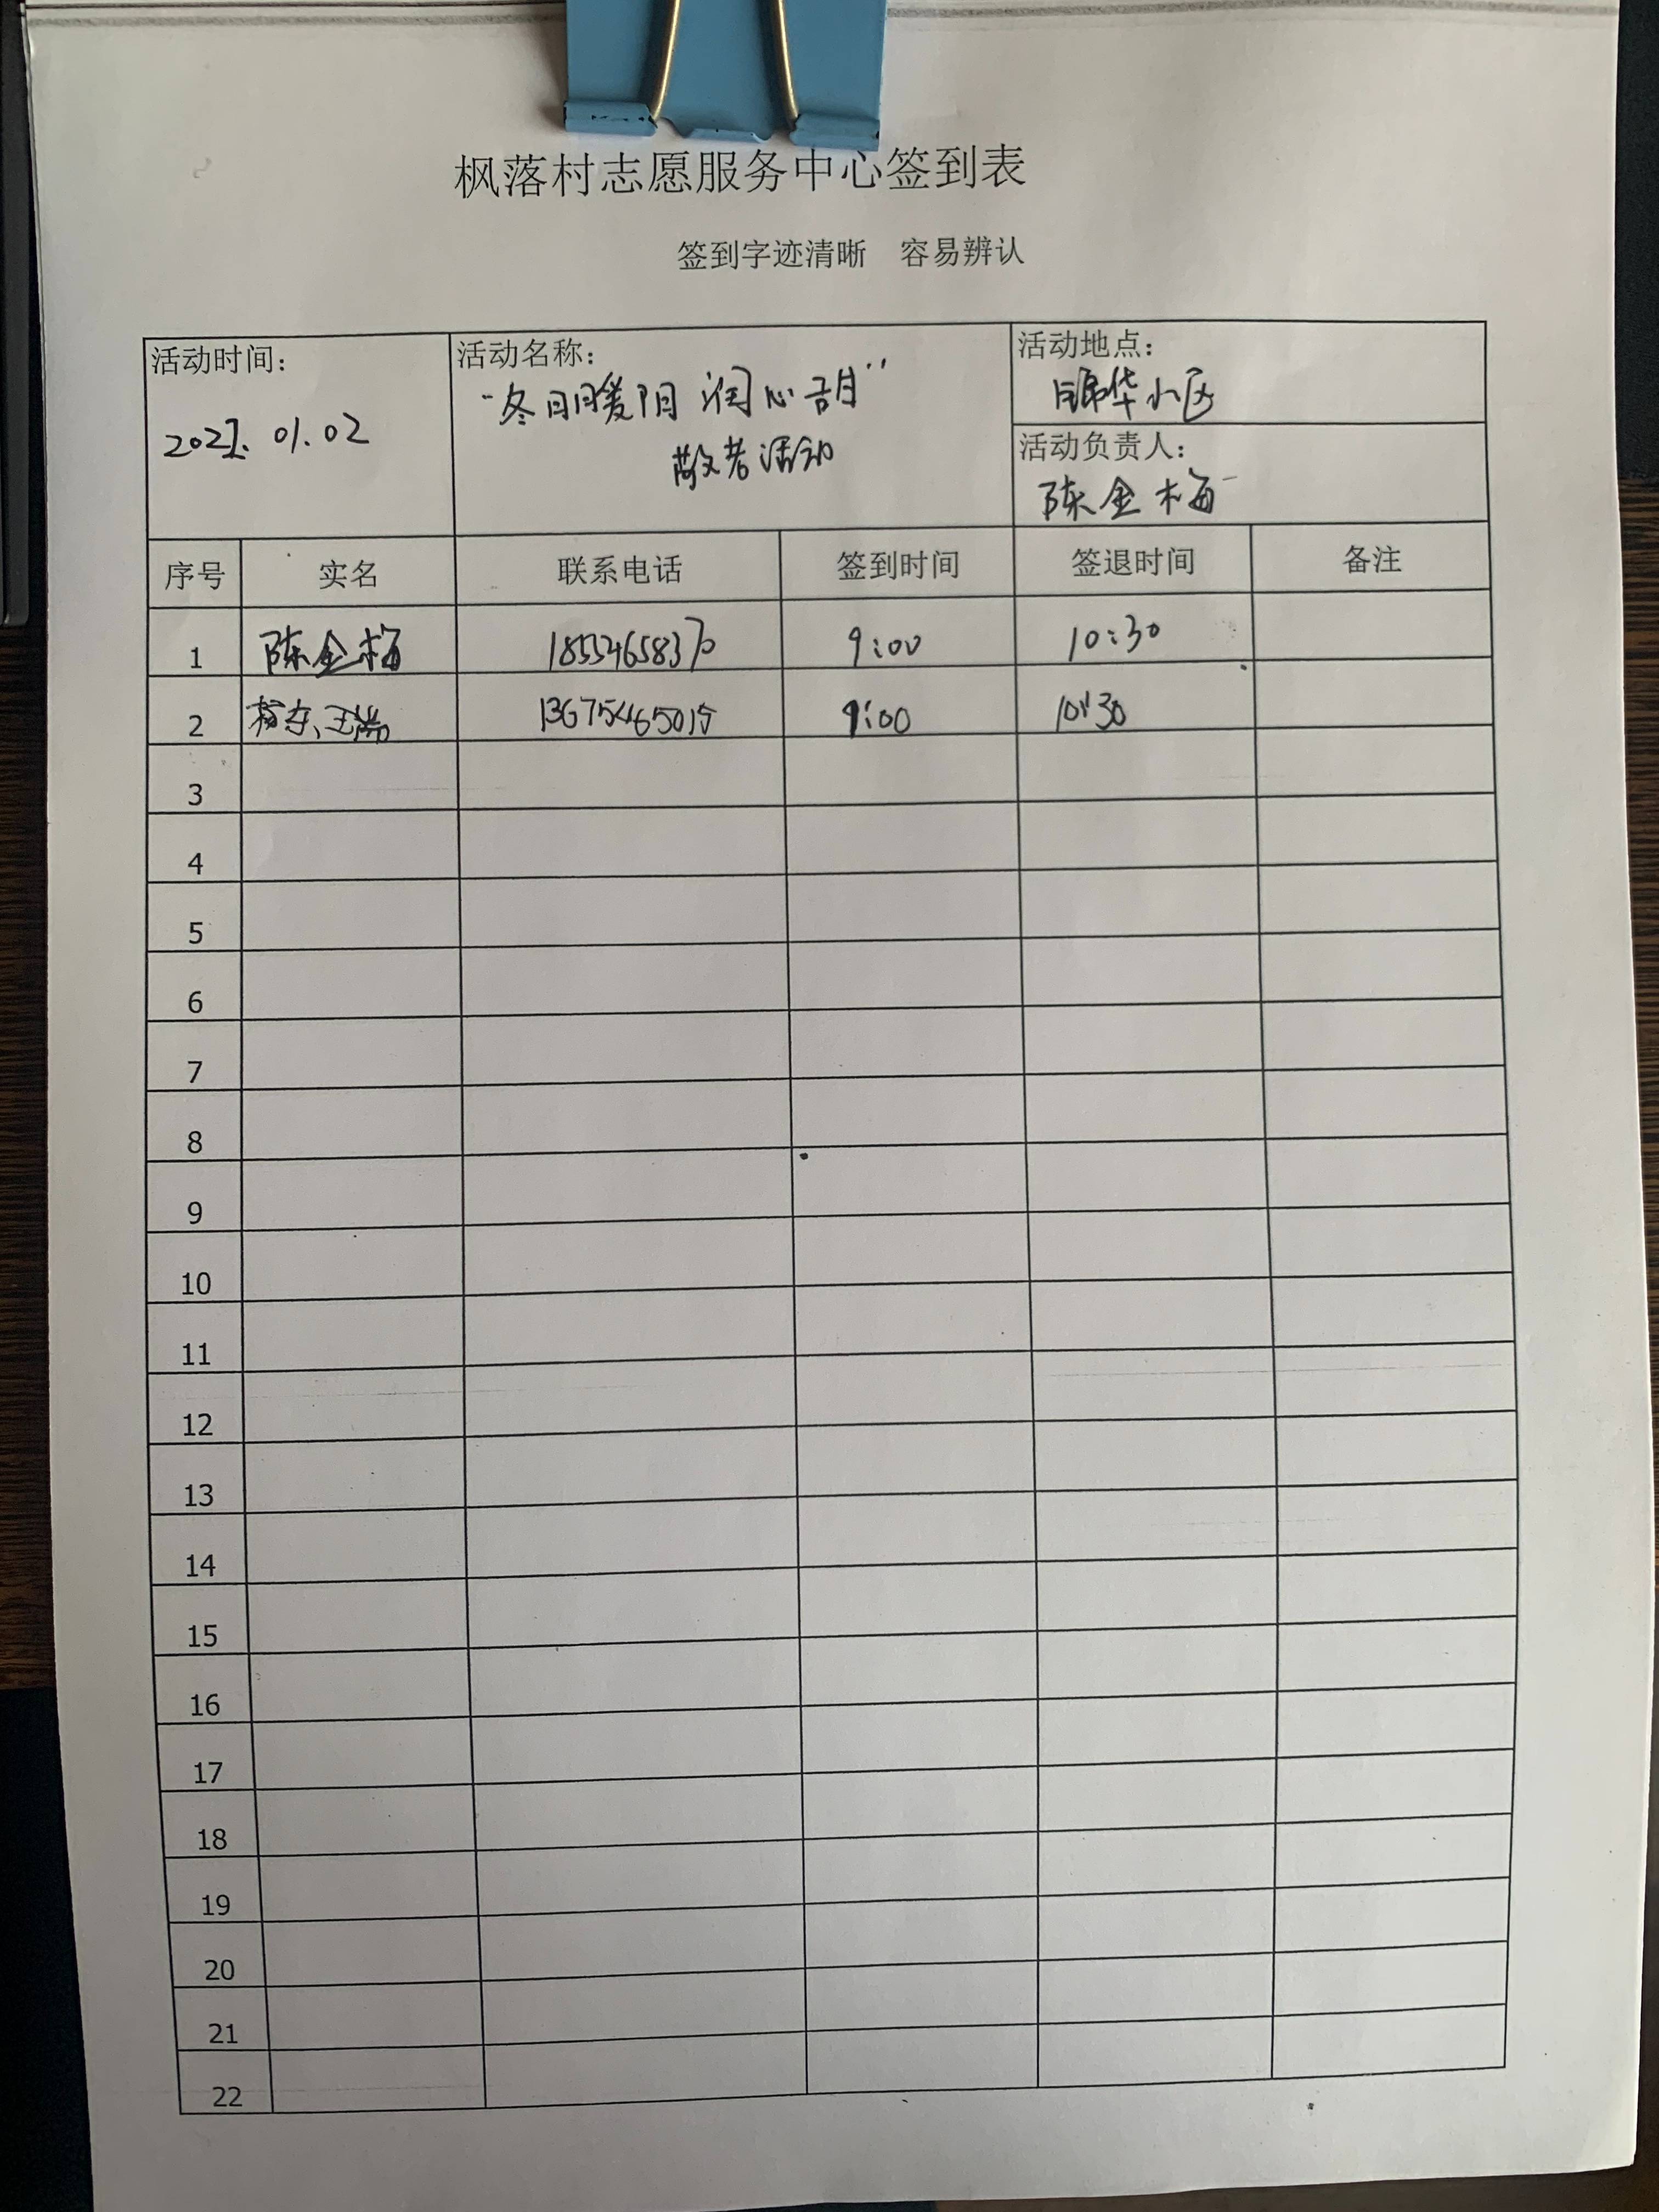 枫落村志愿服务中心签到表
签到字迹清晰 容易辨认
活动时间： 活动名称： 活动地点：
01.02 "冬日暖阳 润心甜" 锦华小区
敬老活动
活动负责人：
陈金梅
序号 实名 联系电话 签到时间 签退时间 备注
1 陈金梅 18554658370 9:00 10:30
2 13675465015 9:00 10:30
3
4
5
6
7
8
9
10
11
12
13
14
15
16
17
18
19
20
21
22